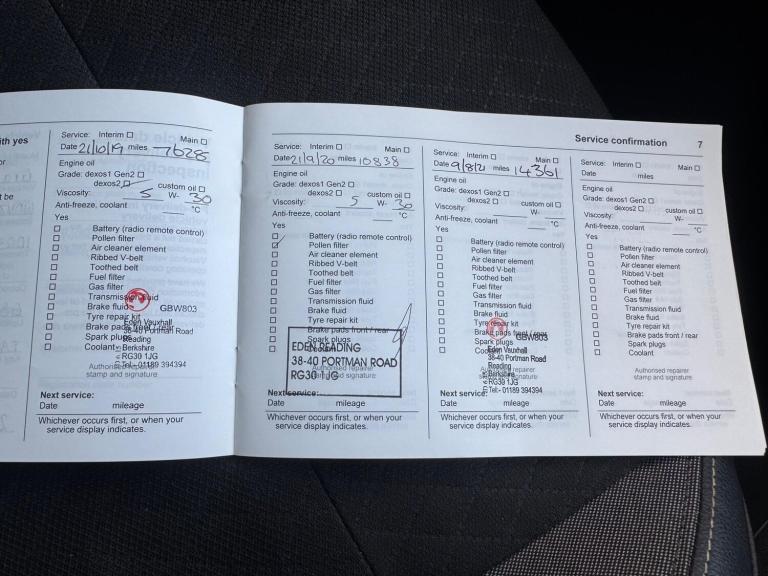 ith yes
or
t be
Service: Interim ☐ Main ☐
Date 21/10/19 miles 7628
Engine oil
Grade: dexos1 Gen2 ☐
dexos2 ☐ custom oil ☐
Viscosity: 5 W- 30
Anti-freeze, coolant °C
Yes
☐ Battery (radio remote control)
☐ Pollen filter
☐ Air cleaner element
☐ Ribbed V-belt
☐ Toothed belt
☐ Fuel filter
☐ Gas filter
☐ Transmission fluid
☐ Brake fluid
☐ Tyre repair kit
☐ Brake pads front / rear
☐ Spark plugs
☐ Coolant
GBW803
Eden Vauxhall
38-40 Portman Road
Reading
Berkshire
RG30 1JG
Tel:- 01189 394394
Authorised repairer
stamp and signature
Next service:
Date mileage
Whichever occurs first, or when your
service display indicates.
Service: Interim ☐ Main ☐
Date 21/9/20 miles 10838
Engine oil
Grade: dexos1 Gen2 ☐
dexos2 ☐ custom oil ☐
Viscosity: 5 W- 30
Anti-freeze, coolant °C
Yes
☐ Battery (radio remote control)
☑ Pollen filter
☐ Air cleaner element
☐ Ribbed V-belt
☐ Toothed belt
☐ Fuel filter
☐ Gas filter
☐ Transmission fluid
☐ Brake fluid
☐ Tyre repair kit
☐ Brake pads front / rear
☐ Spark plugs
☐ Coolant
EDEN READING
38-40 PORTMAN ROAD
RG30 1JG
Authorised repairer
stamp and signature
Next service:
Date mileage
Whichever occurs first, or when your
service display indicates.
Service confirmation 7
Service: Interim ☐ Main ☐
Date 9/8/21 miles 14361
Engine oil
Grade: dexos1 Gen2 ☐
dexos2 ☐ custom oil ☐
Viscosity: W-
Anti-freeze, coolant °C
Yes
☐ Battery (radio remote control)
☐ Pollen filter
☐ Air cleaner element
☐ Ribbed V-belt
☐ Toothed belt
☐ Fuel filter
☐ Gas filter
☐ Transmission fluid
☐ Brake fluid
☐ Tyre repair kit
☐ Brake pads front / rear
☐ Spark plugs
☐ Coolant
GBW803
Eden Vauxhall
38-40 Portman Road
Reading
Berkshire
RG30 1JG
Tel:- 01189 394394
Authorised repairer
stamp and signature
Next service:
Date mileage
Whichever occurs first, or when your
service display indicates.
Service: Interim ☐ Main ☐
Date miles
Engine oil
Grade: dexos1 Gen2 ☐
dexos2 ☐ custom oil ☐
Viscosity: W-
Anti-freeze, coolant °C
Yes
☐ Battery (radio remote control)
☐ Pollen filter
☐ Air cleaner element
☐ Ribbed V-belt
☐ Toothed belt
☐ Fuel filter
☐ Gas filter
☐ Transmission fluid
☐ Brake fluid
☐ Tyre repair kit
☐ Brake pads front / rear
☐ Spark plugs
☐ Coolant
Authorised repairer
stamp and signature
Next service:
Date mileage
Whichever occurs first, or when your
service display indicates.